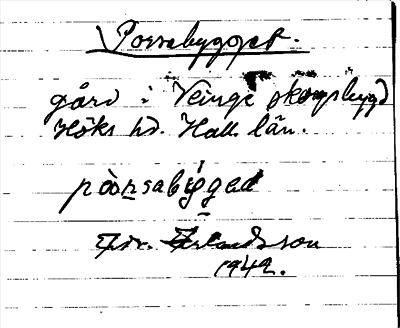 Porsabygget.
gård i Veinge skogsbygd
Höks hd. Hall. län.
pò̀ṉsabýgget
Fdr. Erlandsson
1942.